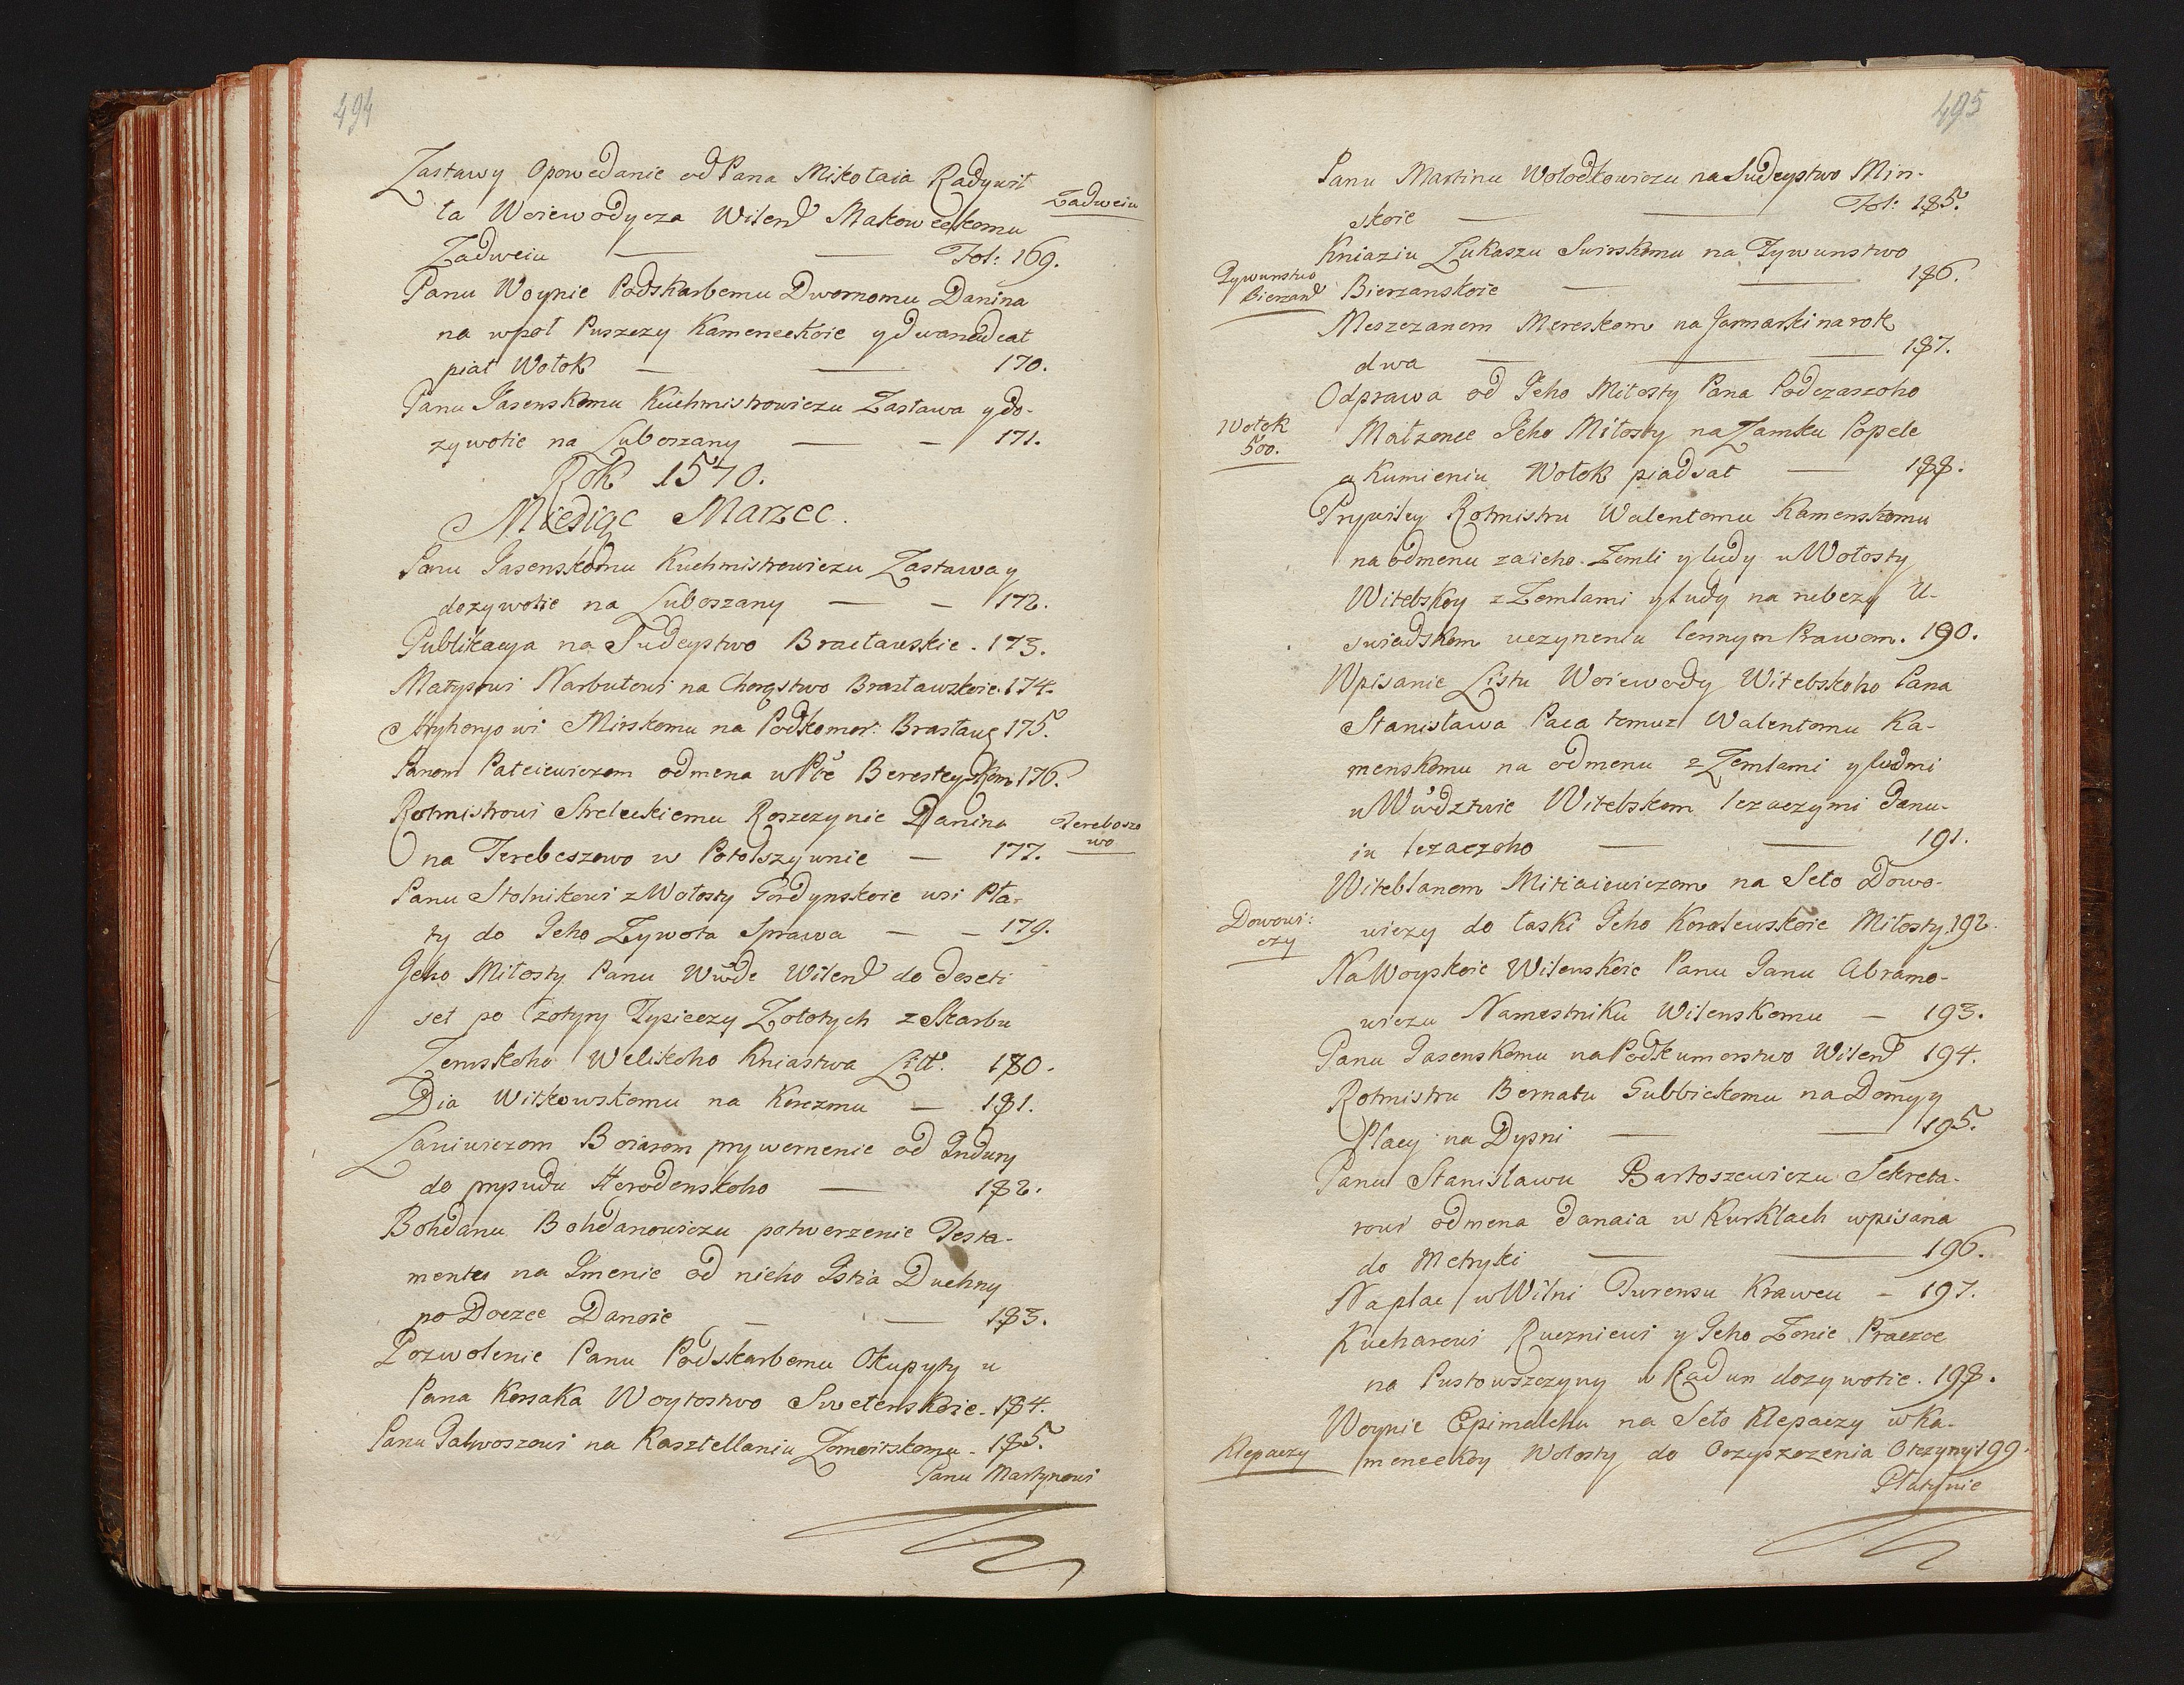 494
Zastawy Opowedanie od Pana Mikołaia Radywił
ła Woiewodycza Wilend Makoweckomu
Zadweiu
Zadweiu — — Fol: 169.
Panu Woynie Podskarbemu Dwornomu Danina
na wpoł Puszczy Kameneckoie y dwanadcat
piat Wołok — — 170.
Panu Jasenskomu Kuchmistrowiczu Zastawa y do-
zywotie na Luboszany — — 171.
Rok 1570.
Miesiąc Marzec.
Panu Jasenskomu Kuchmistrowiczu Zastawa y
dozywotie na Luboszany — — 172.
Publikacya na Sudeystwo Bracławskie. 173.
Matysowi Narbutowi na Chorąstwo Brasławskoie. 174.
Hryhoryowi Mirskomu na Podkomor: Brasławs 175.
Panom Pateiewiczom odmena w Płe Beresteyskom 176.
Rotmistrowi Streleckiemu Roszczynie Danina
na Terebeszowo w Potolszczynie — 177.
Tereboszo
wo
Panu Stolnikowi z Wołosty Gordynskoie wsi Pła-
ty do Jeho Zywota Sprawa — — 179.
Jeho Miłosty Panu Wwde Wilend do deseti
set po Czotyry Tysieczy Zołotych z Skarbu
Zemskoho Welikoho Kniastwa Litt. 180.
Dia Witkowskomu na Korczmu — 181.
Laniwiczom Boiarom prywernenie od Indury
do prysudu Horodenskoho — 182.
Bohdanu Bohdanowiczu potwerzenie Testa-
mentu na Imenie od nieho Istia Duchny
po Doczce Danoie — — 183.
Pozwolenie Panu Podskarbemu Okupyty u
Pana Korsaka Woytostwo Swetenskoie. 184.
Panu Talwoszowi na Kasztellaniu Zomoitskomu. 185.
Panu Martynowi
495
Panu Martinu Wołodkowiczu na Sudeystwo Min-
skoie — — Fol: 185.
Kniaziu Łukaszu Swirskomu na Tywunstwo
Tywunstwo
Bierzand
Bierzanskoie — — 186.
Meszczanom Mereskom na Jarmarki na rok
dwa — — — 187.
Odprawa od Jeho Miłosty Pana Podczaszoho
Wołok
500.
Małzonce Jeho Miłosty na Zamku Popele
y Kumieniu Wołok piadsat — 188.
Prywiley Rotmistru Walentomu Kamenskomu
na odmenu za ieho Zemli y ludy u Wołosty
Witebskoy z Zemlami y ludy na rubezy U-
swiadskom uczynenu lennym Prawom. 190.
Wpisanie Listu Woiewody Witebskoho Pana
Stanisława Paca tomuz Walentomu Ka-
menskomu na odmenu z Zemlami y ludmi
u Wwdztwie Witebskom lezaczymi Danu-
iu lezaczoho — — 191.
Witeblanom Mitiaiewiczom na Seło Dowo-
Dowowi:
czy
wiczy do łaski Jeho Korolewskoie Miłosty. 192.
Na Woyskoie Wilenskoie Panu Janu Abramo-
wiczu Namestniku Wilenskomu — 193.
Panu Jasenskomu na Podkumorstwo Wilend 194.
Rotmistru Bernatu Gubbickomu na Domy y
Placy na Dysni — — 195.
Panu Stanisławu Bartoszewiczu Sekreta-
rowi odmena danaia w Kurklach wpisana
do Metryki — — 196.
Na plac w Wilni Turensu Krawcu — 197.
Kucharowi Ruezniewi y Jeho Zonie Praczce
na Pustowszczyny w Radun dozywotie. 198.
Woynie Epimalchu na Seło Klepaczy w Ka-
Klepaczy
meneckoy Wołosty do Oczyszczenia Otczyny. 199.
Płatynie